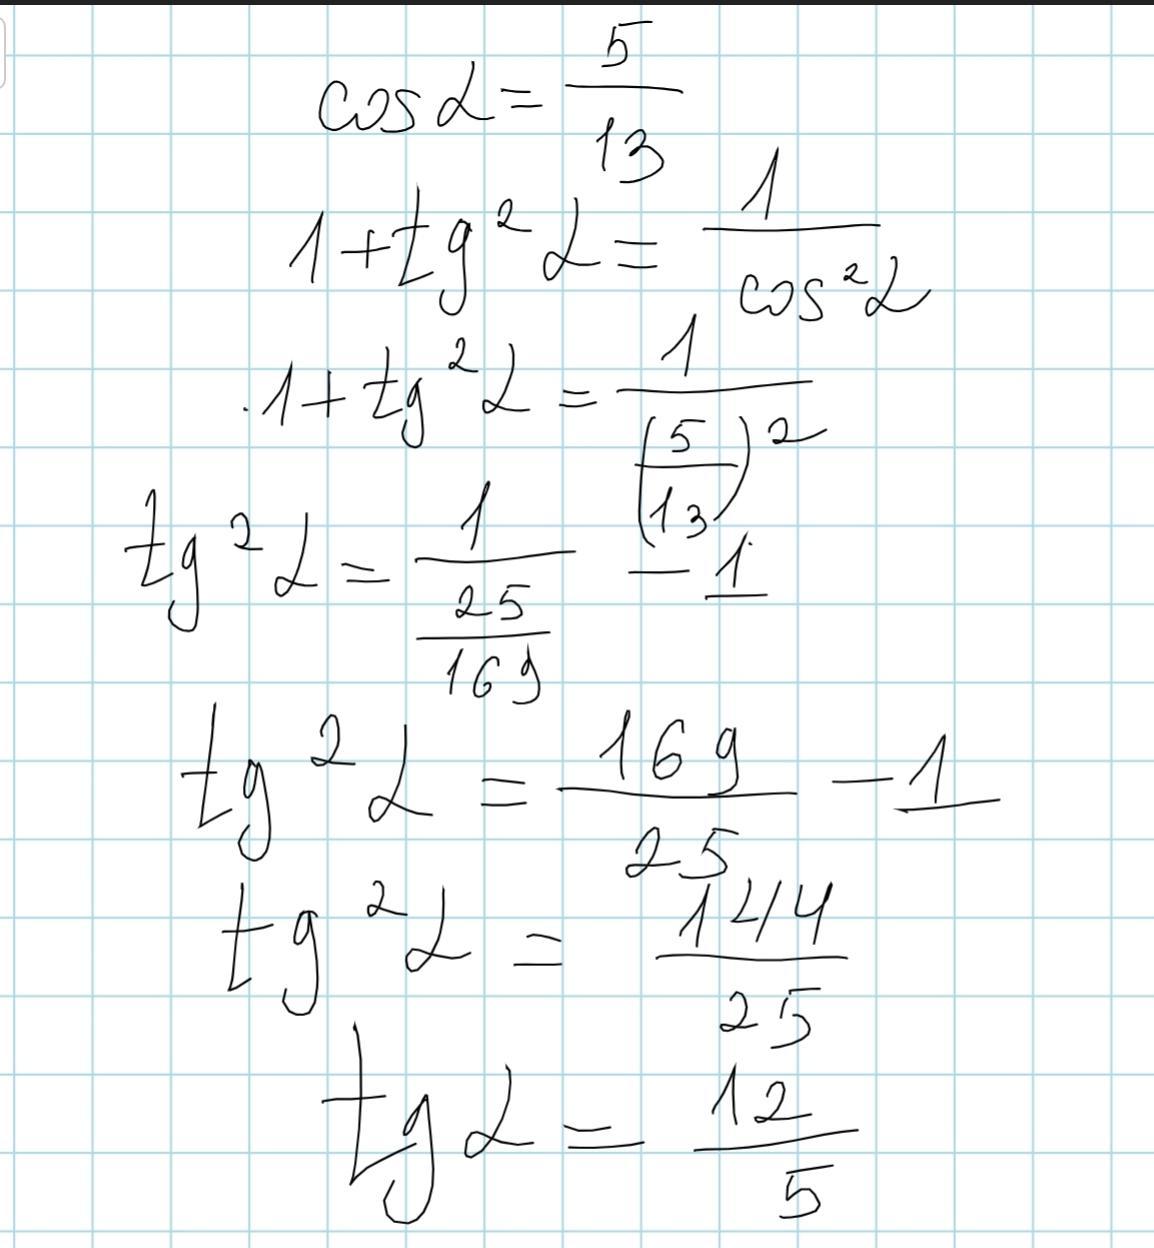 cos α = 5/13
1 + tg² α = 1/cos² α
1 + tg² α = 1/(5/13)²
tg² α = 1/(25/169) - 1
tg² α = 169/25 - 1
tg² α = 144/25
tg α = 12/5